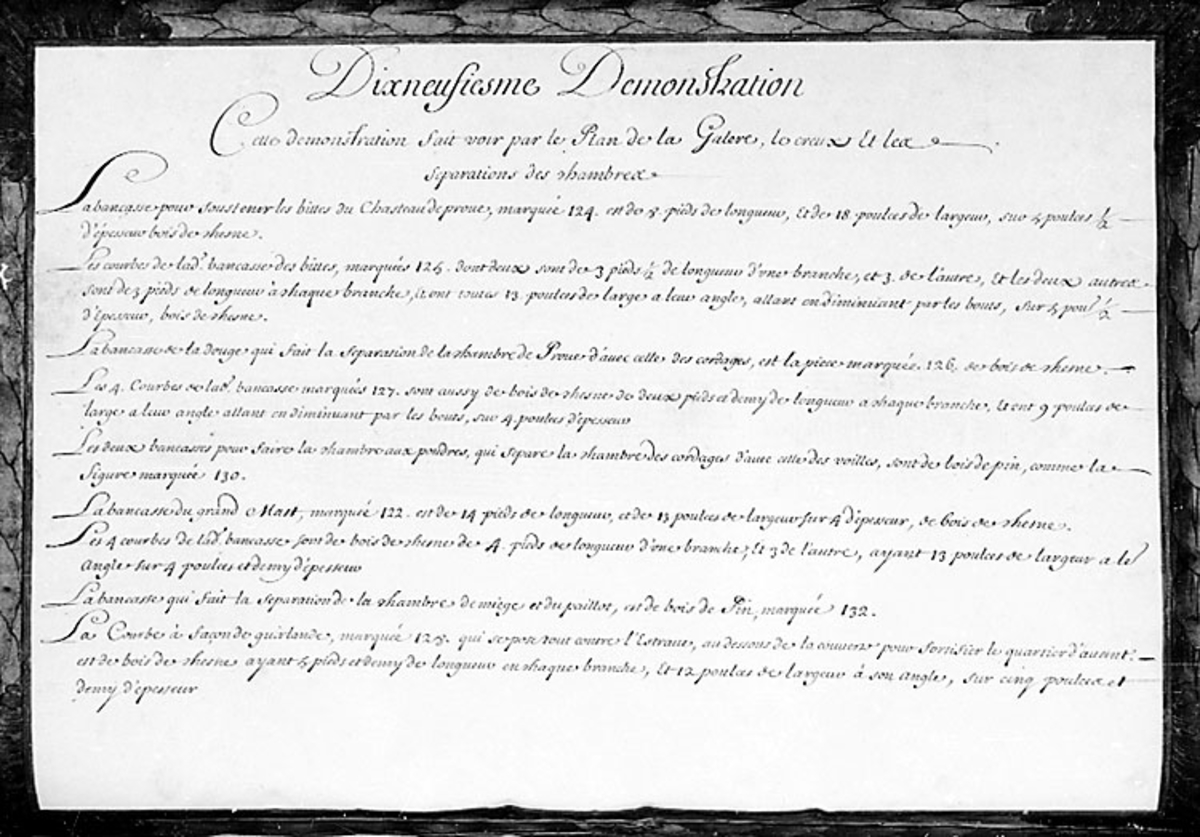 Dixneufiesme Demonstration
Cette demonstration fait voir par le Plan de la Galere, le creux Et les
separations des chambres
La bancasse pour soustenir les bittes du Chasteau de proue, marquée 124. est de 8. pieds de longueur, Et de 18. poulces de largeur, sur 5 poulces ½
d'épesseur bois de chesne.
Les courbes de lad.e bancasse des bittes, marquées 125. dont deux sont de 3 pieds ½ de longueur d'vne branche, et 3. de l'autre, Et les deux autres
sont de 3 pieds de longueur à chaque branche, Et ont toutes 13. poulces de large a leur angle, allant en diminuant par les bouts, sur 5 poul.s ½
d'épesseur, bois de chesne.
La bancasse de la douge qui fait la separation de la chambre de Proue d'avec celle des cordages, est la piece marquée. 126, de bois de chesne.
Les 4. Courbes de lad.e bancasse marquées 127. sont aussy de bois de chesne de deux pieds et demy de longueur a chaque branche, Et ont 9 poulces de
large a leur angle allant en diminuant par les bouts, sur 4. poulces d'épesseur
Les deux bancasses pour faire la chambre aux poudres, qui separe la chambre des cordages d'avec celle des voilles, sont de bois de pin, comme la
figure marquée 130.
La bancasse du grand Mast, marquée 122. est de 14 pieds de longueur, et de 13 poulces de largeur sur 4 d'épesseur, de bois de chesne.
Les 4 courbes de lad.e bancasse sont de bois de chesne de 4. pieds de longueur d'vne branche, Et 3 de l'autre, ayant 13 poulces de largeur a le
angle sur 4 poulces et demy d'épesseur
La bancasse qui fait la separation de la chambre de miege et du paillot, est de bois de Pin, marquée 132.
La Courbe à façon de guirlande, marquée 128. qui se pose tout contre l'Estraue, au dessous de la couverte pour fortifier le quartier d'auant.
est de bois de chesne ayant 5 pieds et demy de longueur en chaque branche, Et 12 poulces de largeur à son angle, sur cinq poulces et
demy d'épesseur